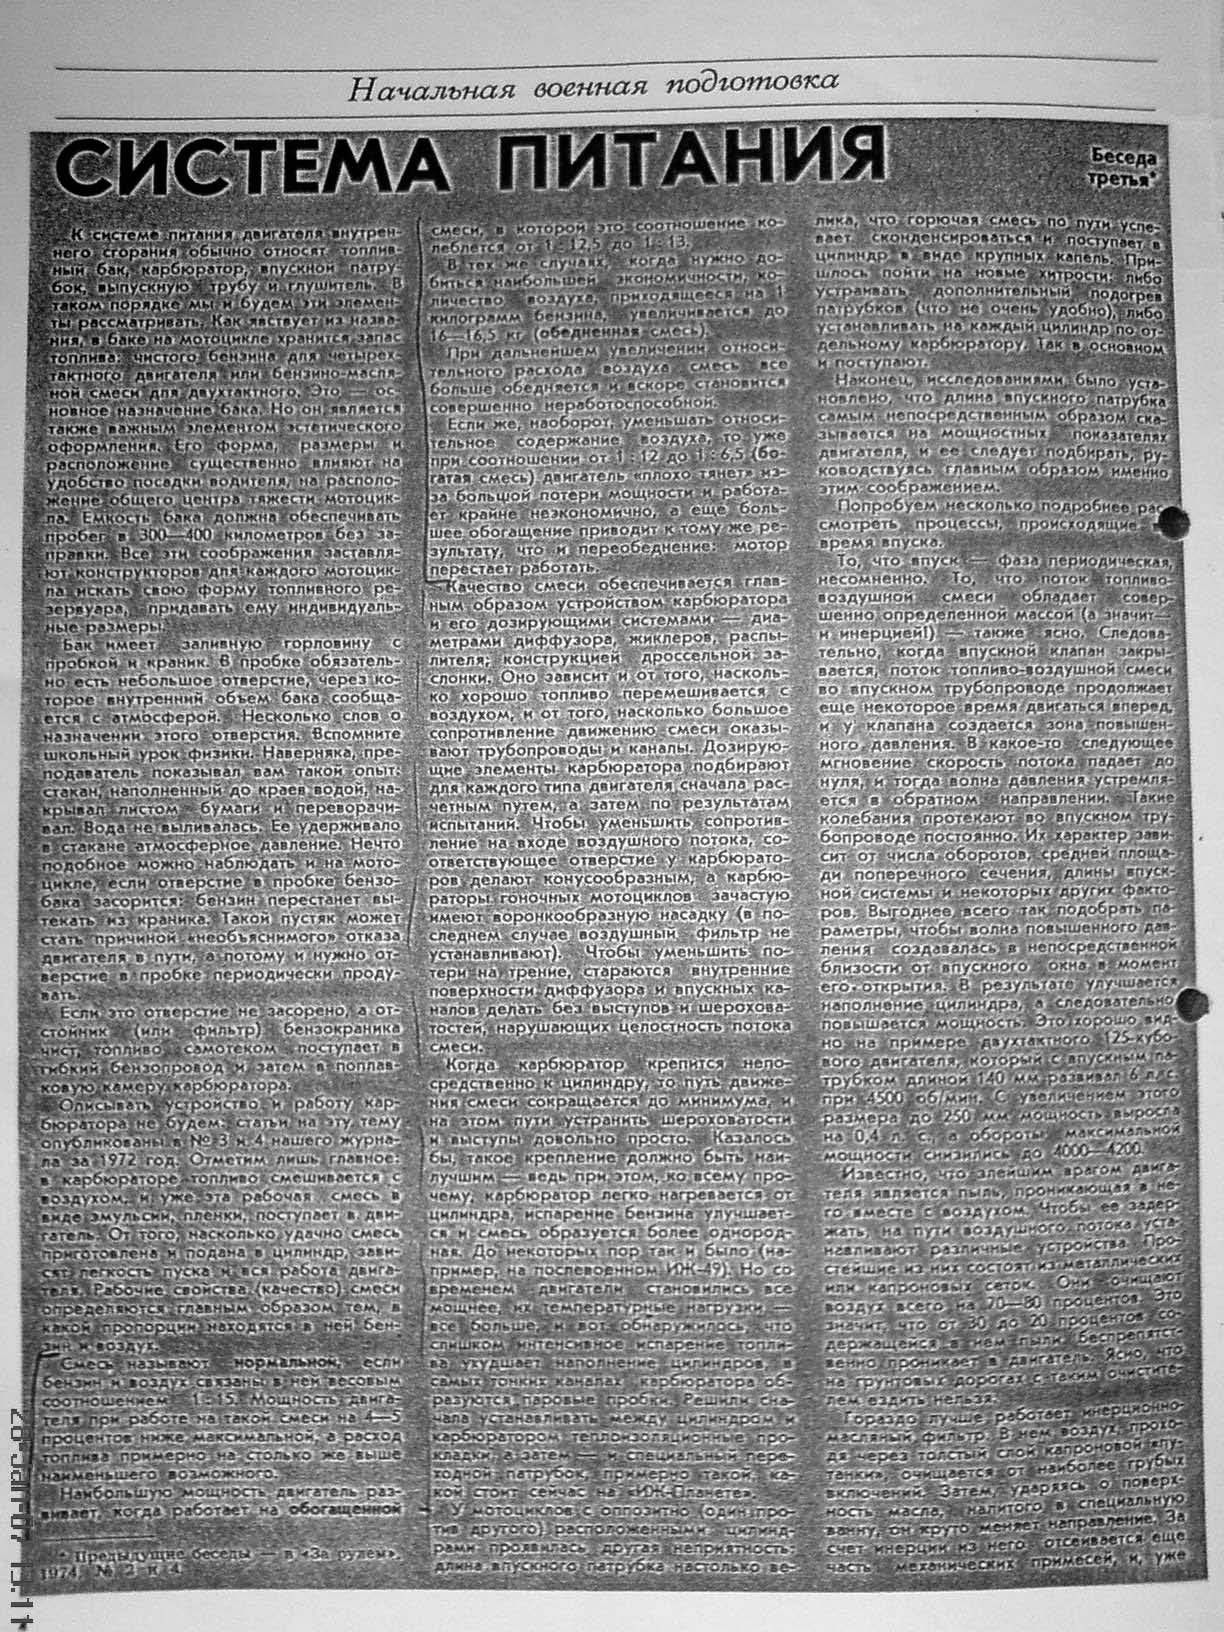 Начальная военная подготовка
СИСТЕМА ПИТАНИЯ
Беседа
третья*
К системе питания двигателя внутрен-
него сгорания обычно относят топлив-
ный бак, карбюратор, впускной патру-
бок, выпускную трубу и глушитель. В
таком порядке мы и будем эти элемен-
ты рассматривать. Как явствует из назва-
ния, в баке на мотоцикле хранится запас
топлива: чистого бензина для четырех-
тактного двигателя или бензино-масля-
ной смеси для двухтактного. Это — ос-
новное назначение бака. Но он является
также важным элементом эстетического
оформления. Его форма, размеры и
расположение существенно влияют на
удобство посадки водителя, на располо-
жение общего центра тяжести мотоцик-
ла. Емкость бака должна обеспечивать
пробег в 300—400 километров без за-
правки. Все эти соображения заставля-
ют конструкторов для каждого мотоцик-
ла искать свою форму топливного ре-
зервуара, придавать ему индивидуаль-
ные размеры.
Бак имеет заливную горловину с
пробкой и краник. В пробке обязатель-
но есть небольшое отверстие, через ко-
торое внутренний объем бака сообща-
ется с атмосферой. Несколько слов о
назначении этого отверстия. Вспомните
школьный урок физики. Наверняка, пре-
подаватель показывал вам такой опыт:
стакан, наполненный до краев водой, на-
крывал листом бумаги и переворачи-
вал. Вода не выливалась. Ее удерживало
в стакане атмосферное давление. Нечто
подобное можно наблюдать и на мото-
цикле, если отверстие в пробке бензо-
бака засорится: бензин перестанет вы-
текать из краника. Такой пустяк может
стать причиной «необъяснимого» отказа
двигателя в пути, а потому и нужно от-
верстие в пробке периодически проду-
вать.
Если это отверстие не засорено, а от-
стойник (или фильтр) бензокраника
чист, топливо самотеком поступает в
гибкий бензопровод и затем в поплав-
ковую камеру карбюратора.
Описывать устройство и работу кар-
бюратора не будем: статьи на эту тему
опубликованы в № 3 и 4 нашего журна-
ла за 1972 год. Отметим лишь главное:
в карбюраторе топливо смешивается с
воздухом, и уже эта рабочая смесь в
виде эмульсии, пленки, поступает в дви-
гатель. От того, насколько удачно смесь
приготовлена и подана в цилиндр, зави-
сят легкость пуска и вся работа двига-
теля. Рабочие свойства (качество) смеси
определяются главным образом тем, в
какой пропорции находятся в ней бен-
зин и воздух.
Смесь называют нормальной, если
бензин и воздух связаны в ней весовым
соотношением 1:15. Мощность двига-
теля при работе на такой смеси на 4—5
процентов ниже максимальной, а расход
топлива примерно на столько же выше
наименьшего возможного.
Наибольшую мощность двигатель раз-
вивает, когда работает на обогащенной
* Предыдущие беседы — в «За рулем»,
1974, № 2 и 4.
смеси, в которой это соотношение ко-
леблется от 1:12,5 до 1:13.
В тех же случаях, когда нужно до-
биться наибольшей экономичности, ко-
личество воздуха, приходящееся на 1
килограмм бензина, увеличивается до
16—16,5 кг (обедненная смесь).
При дальнейшем увеличении относи-
тельного расхода воздуха смесь все
больше обедняется и вскоре становится
совершенно неработоспособной.
Если же, наоборот, уменьшать относи-
тельное содержание воздуха, то уже
при соотношении от 1:12 до 1:6,5 (бо-
гатая смесь) двигатель «плохо тянет» из-
за большой потери мощности и работа-
ет крайне неэкономично, а еще боль-
шее обогащение приводит к тому же ре-
зультату, что и переобеднение: мотор
перестает работать.
Качество смеси обеспечивается глав-
ным образом устройством карбюратора
и его дозирующими системами — диа-
метрами диффузора, жиклеров, распы-
лителя; конструкцией дроссельной за-
слонки. Оно зависит и от того, насколь-
ко хорошо топливо перемешивается с
воздухом, и от того, насколько большое
сопротивление движению смеси оказы-
вают трубопроводы и каналы. Дозирую-
щие элементы карбюратора подбирают
для каждого типа двигателя сначала рас-
четным путем, а затем по результатам
испытаний. Чтобы уменьшить сопротив-
ление на входе воздушного потока, со-
ответствующее отверстие у карбюрато-
ров делают конусообразным, а карбю-
раторы гоночных мотоциклов зачастую
имеют воронкообразную насадку (в по-
следнем случае воздушный фильтр не
устанавливают). Чтобы уменьшить по-
тери на трение, стараются внутренние
поверхности диффузора и впускных ка-
налов делать без выступов и шерохова-
тостей, нарушающих целостность потока
смеси.
Когда карбюратор крепится непо-
средственно к цилиндру, то путь движе-
ния смеси сокращается до минимума, и
на этом пути устранить шероховатости
и выступы довольно просто. Казалось
бы, такое крепление должно быть наи-
лучшим — ведь при этом, ко всему про-
чему, карбюратор легко нагревается от
цилиндра, испарение бензина улучшает-
ся и смесь образуется более однород-
ная. До некоторых пор так и было (на-
пример, на послевоенном ИЖ-49). Но со
временем двигатели становились все
мощнее, их температурные нагрузки —
все больше, и вот обнаружилось, что
слишком интенсивное испарение топли-
ва ухудшает наполнение цилиндров, в
самых тонких каналах карбюратора об-
разуются паровые пробки. Решили сна-
чала устанавливать между цилиндром и
карбюратором теплоизоляционные про-
кладки, а затем — и специальный пере-
ходной патрубок, примерно такой, ка-
кой стоит сейчас на «ИЖ-Планете».
У мотоциклов с оппозитно (один про-
тив другого) расположенными цилинд-
рами проявилась другая неприятность:
длина впускного патрубка настолько ве-
лика, что горючая смесь по пути успе-
вает сконденсироваться и поступает в
цилиндр в виде крупных капель. При-
шлось пойти на новые хитрости: либо
устраивать дополнительный подогрев
патрубков (что не очень удобно), либо
устанавливать на каждый цилиндр по от-
дельному карбюратору. Так в основном
и поступают.
Наконец, исследованиями было уста-
новлено, что длина впускного патрубка
самым непосредственным образом ска-
зывается на мощностных показателях
двигателя, и ее следует подбирать, ру-
ководствуясь главным образом именно
этим соображением.
Попробуем несколько подробнее рас-
смотреть процессы, происходящие
время впуска.
То, что впуск — фаза периодическая,
несомненно. То, что поток топливо-
воздушной смеси обладает совер-
шенно определенной массой (а значит—
и инерцией!) — также ясно. Следова-
тельно, когда впускной клапан закры-
вается, поток топливо-воздушной смеси
во впускном трубопроводе продолжает
еще некоторое время двигаться вперед,
и у клапана создается зона повышен-
ного давления. В какое-то следующее
мгновение скорость потока падает до
нуля, и тогда волна давления устремля-
ется в обратном направлении. Такие
колебания протекают во впускном тру-
бопроводе постоянно. Их характер зави-
сит от числа оборотов, средней площа-
ди поперечного сечения, длины впуск-
ной системы и некоторых других факто-
ров. Выгоднее всего так подобрать па-
раметры, чтобы волна повышенного дав-
ления создавалась в непосредственной
близости от впускного окна в момент
его открытия. В результате улучшается
наполнение цилиндра, а следовательно
повышается мощность. Это хорошо вид-
но на примере двухтактного 125-кубо-
вого двигателя, который с впускным па-
трубком длиной 140 мм развивал 6 л. с.
при 4500 об/мин. С увеличением этого
размера до 250 мм мощность выросла
на 0,4 л. с., а обороты максимальной
мощности снизились до 4000—4200.
Известно, что злейшим врагом двига-
теля является пыль, проникающая в не-
го вместе с воздухом. Чтобы ее задер-
жать, на пути воздушного потока уста-
навливают различные устройства. Про-
стейшие из них состоят из металлических
или капроновых сеток. Они очищают
воздух всего на 70—80 процентов. Это
значит, что от 30 до 20 процентов со-
держащейся в нем пыли беспрепятст-
венно проникает в двигатель. Ясно, что
на грунтовых дорогах с таким очистите-
лем ездить нельзя.
Гораздо лучше работает инерционно-
масляный фильтр. В нем воздух, прохо-
дя через толстый слой капроновой «пу-
танки», очищается от наиболее грубых
включений. Затем, ударяясь о поверх-
ность масла, налитого в специальную
ванну, он круто меняет направление. За
счет инерции из него отсеивается еще
часть механических примесей, и, уже